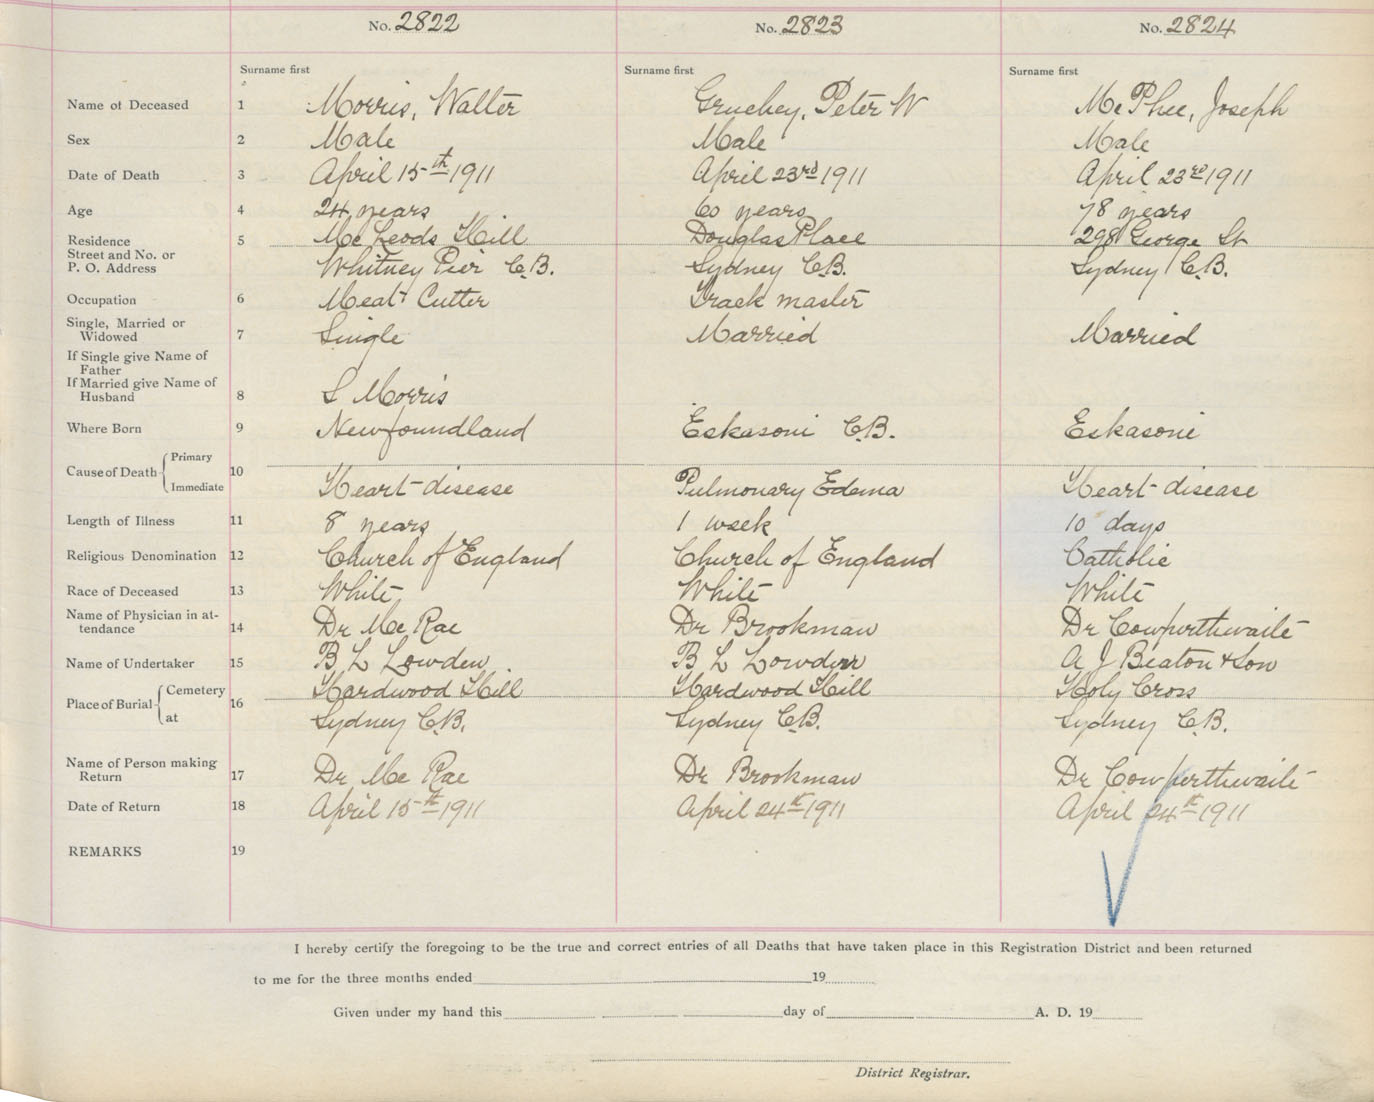 No. 2822 No. 2823 No. 2824
Surname first Surname first Surname first
Name of Deceased 1 Morris, Walter Gruchey, Peter W McPhee, Joseph
Sex 2 Male Male Male
Date of Death 3 April 15th 1911 April 23rd 1911 April 23rd 1911
Age 4 24 years 60 years 78 years
Residence 5 McLeods Hill Douglas Place 298 George St
Street and No. or
P. O. Address Whitney Pier C.B. Sydney C.B. Sydney C.B.
Occupation 6 Meat Cutter Track master
Single, Married or
Widowed 7 Single Married Married
If Single give Name of
Father
If Married give Name of
Husband 8 S Morris
Where Born 9 Newfoundland Eskasoni C.B. Eskasoni
Cause of Death Primary 10
Immediate Heart disease Pulmonary Edema Heart disease
Length of Illness 11 8 years 1 week 10 days
Religious Denomination 12 Church of England Church of England Catholic
Race of Deceased 13 White White White
Name of Physician in at-
tendance 14 Dr McRae Dr Brookman Dr Cowperthwaite
Name of Undertaker 15 B L Lowden B L Lowden A J Beaton & Son
Place of Burial Cemetery 16 Hardwood Hill Hardwood Hill Holy Cross
at Sydney C.B. Sydney C.B. Sydney C.B.
Name of Person making
Return 17 Dr McRae Dr Brookman Dr Cowperthwaite
Date of Return 18 April 15th 1911 April 24th 1911 April 24th 1911
REMARKS 19
I hereby certify the foregoing to be the true and correct entries of all Deaths that have taken place in this Registration District and been returned
to me for the three months ended 19
Given under my hand this day of A. D. 19
District Registrar.